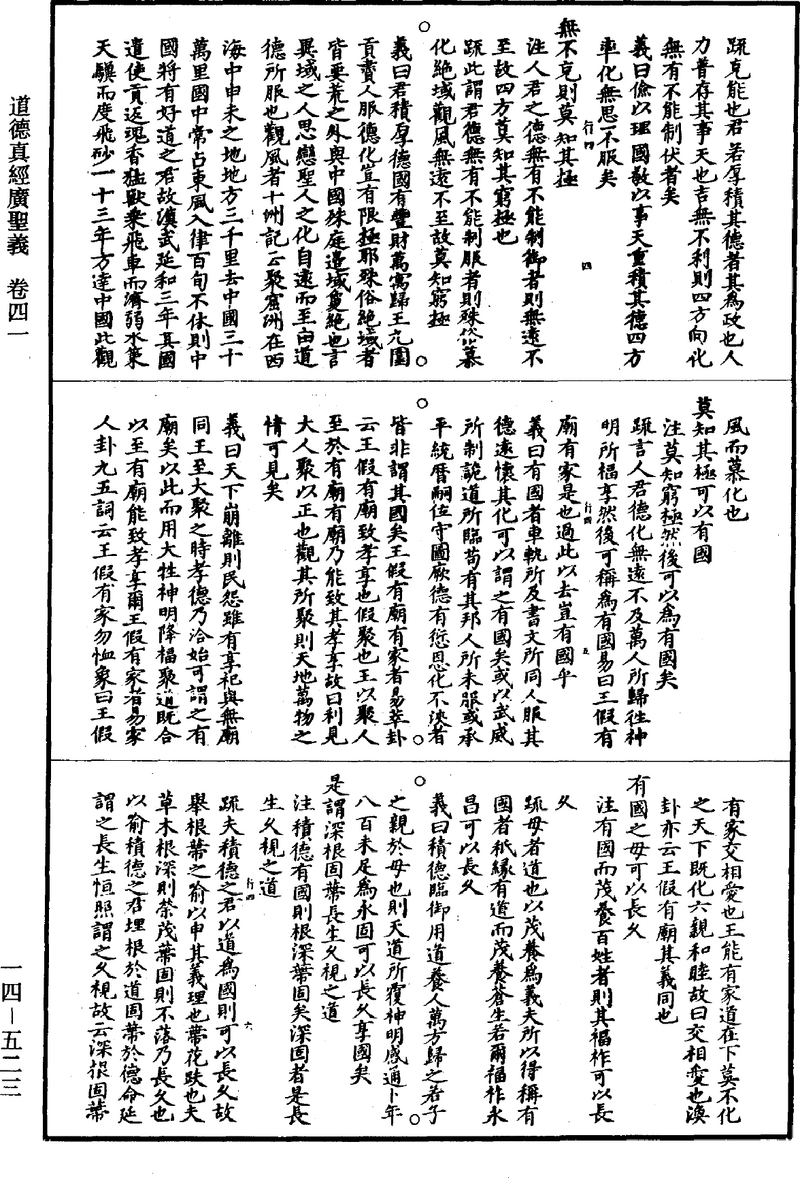 疏克能也君若厚積其德者其為政也人
力普存其事天也吉無不利則四方向化
無有不能制伏者矣
義曰儉以理國敬以事天重積其德四方
率化無思不服矣
無不克則莫知其極
注人君之德無有不能制御者則無遠不
至故四方莫知其窮極也
疏此謂君德無有不能制服者則殊俗慕
化絕域觀風無遠不至故莫知窮極
義曰君積厚德國有豐財萬寓歸王九圍
貢賣人服德化豈有限極耶殊俗絕域者
皆要荒之外與中國殊庭邊域敻絕也言
異域之人思戀聖人之化自遠而至由道
德所服也觀風者十洲記云聚窟洲在西
海中申未之地地方三千里去中國三十
萬里國中常占東風入律百旬不休則中
國將有好道之君故漢武延和三年其國
遣使貢返魂香猛獸乘飛車而濟弱水策
天驥而度飛砂一十三年方達中國此觀
風而慕化也
莫知其極可以有國
注莫知窮極然後可以為有國矣
疏言人君德化無遠不及萬人所歸往神
明所福享然後可稱為有國易曰王假有
廟有家是也過此以去豈有國乎
義曰有國者車軌所及書文所同人服其
德遠懷其化可以謂之有國矣或以武威
所制詭道所臨苟有其邦人所未服或承
平統曆嗣位守圖厥德有愆恩化不浹者
皆非謂其國矣王假有廟有家者易萃卦
云王假有廟致孝享也假聚也王以聚人
至於有廟有廟乃能致其孝享故曰利見
大人聚以正也觀其所聚則天地萬物之
情可見矣
義曰天下崩離則民怨雖有享祀與無廟
同王至大聚之時孝德乃洽始可謂之有
廟矣以此而用大牲神明降福聚道既合
以至有廟能致孝享爾王假有家者易家
人卦九五詞云王假有家勿恤象曰王假
有家交相愛也王能有家道在下莫不化
之天下既化六親和睦故曰交相愛也渙
卦亦云王假有廟其義同也
有國之母可以長久
注有國而茂養百姓者則其福祚可以長
久
疏母者道也以茂養為義夫所以得稱有
國者祇緣有道而茂養蒼生若爾福祚永
昌可以長久
義曰積德臨御用道養人萬方歸之若子
之親於母也則天道所覆神明感通卜年
八百未足為永固可以長久享國矣
是謂深根固蔕長生久視之道
注積德有國則根深蔕固矣深固者是長
生久視之道
疏夫積德之君以道為國則可以長久故
舉根蔕之喻以申其義理也蔕花趺也夫
草木根深則榮茂蔕固則不落乃長久也
以喻積德之君埋根於道固蔕於德命延
謂之長生恒照謂之久視故云深根固蔕
道德真經廣聖義 卷四一
一四—五二三